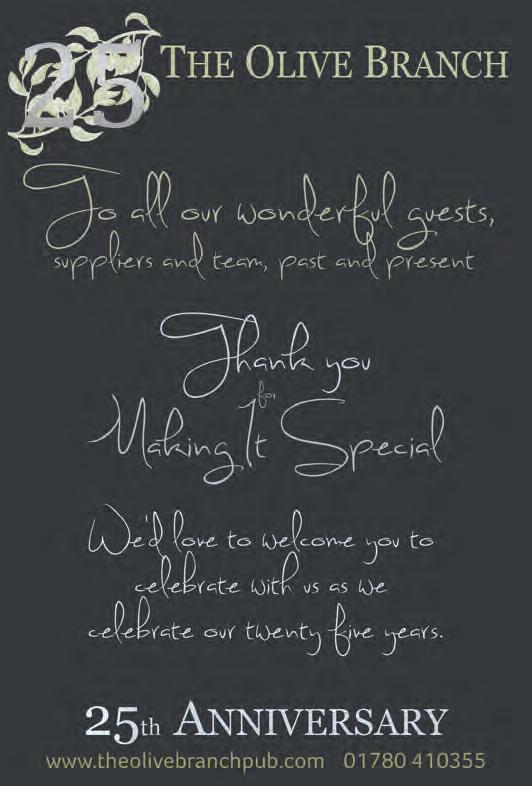 25 THE OLIVE BRANCH
To all our wonderful guests,
suppliers and team, past and present
Thank you
for
Making It Special
We'd love to welcome you to
celebrate with us as we
celebrate our twenty five years.
25th ANNIVERSARY
www.theolivebranchpub.com 01780 410355